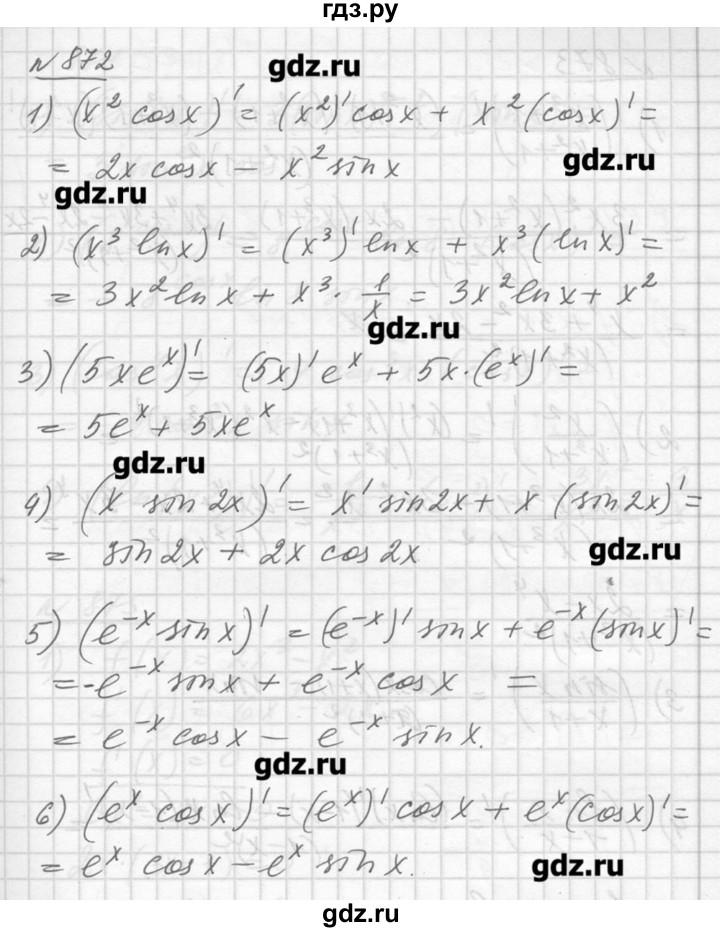 гдз.ру
№ 872
gdz.ru
1) (x² cosx)' = (x²)' cosx + x² (cosx)' =
gdz.ru
= 2x cosx − x² sinx
gdz.ru
2) (x³ lnx)' = (x³)' lnx + x³ (lnx)' =
= 3x² lnx + x³ · 1/x = 3x² lnx + x²
gdz.ru
3) (5xeˣ)' = (5x)' eˣ + 5x · (eˣ)' =
= 5eˣ + 5xeˣ
gdz.ru
4) (x sin2x)' = x' sin2x + x (sin2x)' =
= sin2x + 2x cos2x
gdz.ru
5) (e⁻ˣ sinx)' = (e⁻ˣ)' sinx + e⁻ˣ (sinx)' =
= -e⁻ˣ sinx + e⁻ˣ cosx =
= e⁻ˣ cosx − e⁻ˣ sinx.
gdz.ru
6) (eˣ cosx)' = (eˣ)' cosx + eˣ (cosx)' =
= eˣ cosx − eˣ sinx.
gdz.ru
gdz.ru